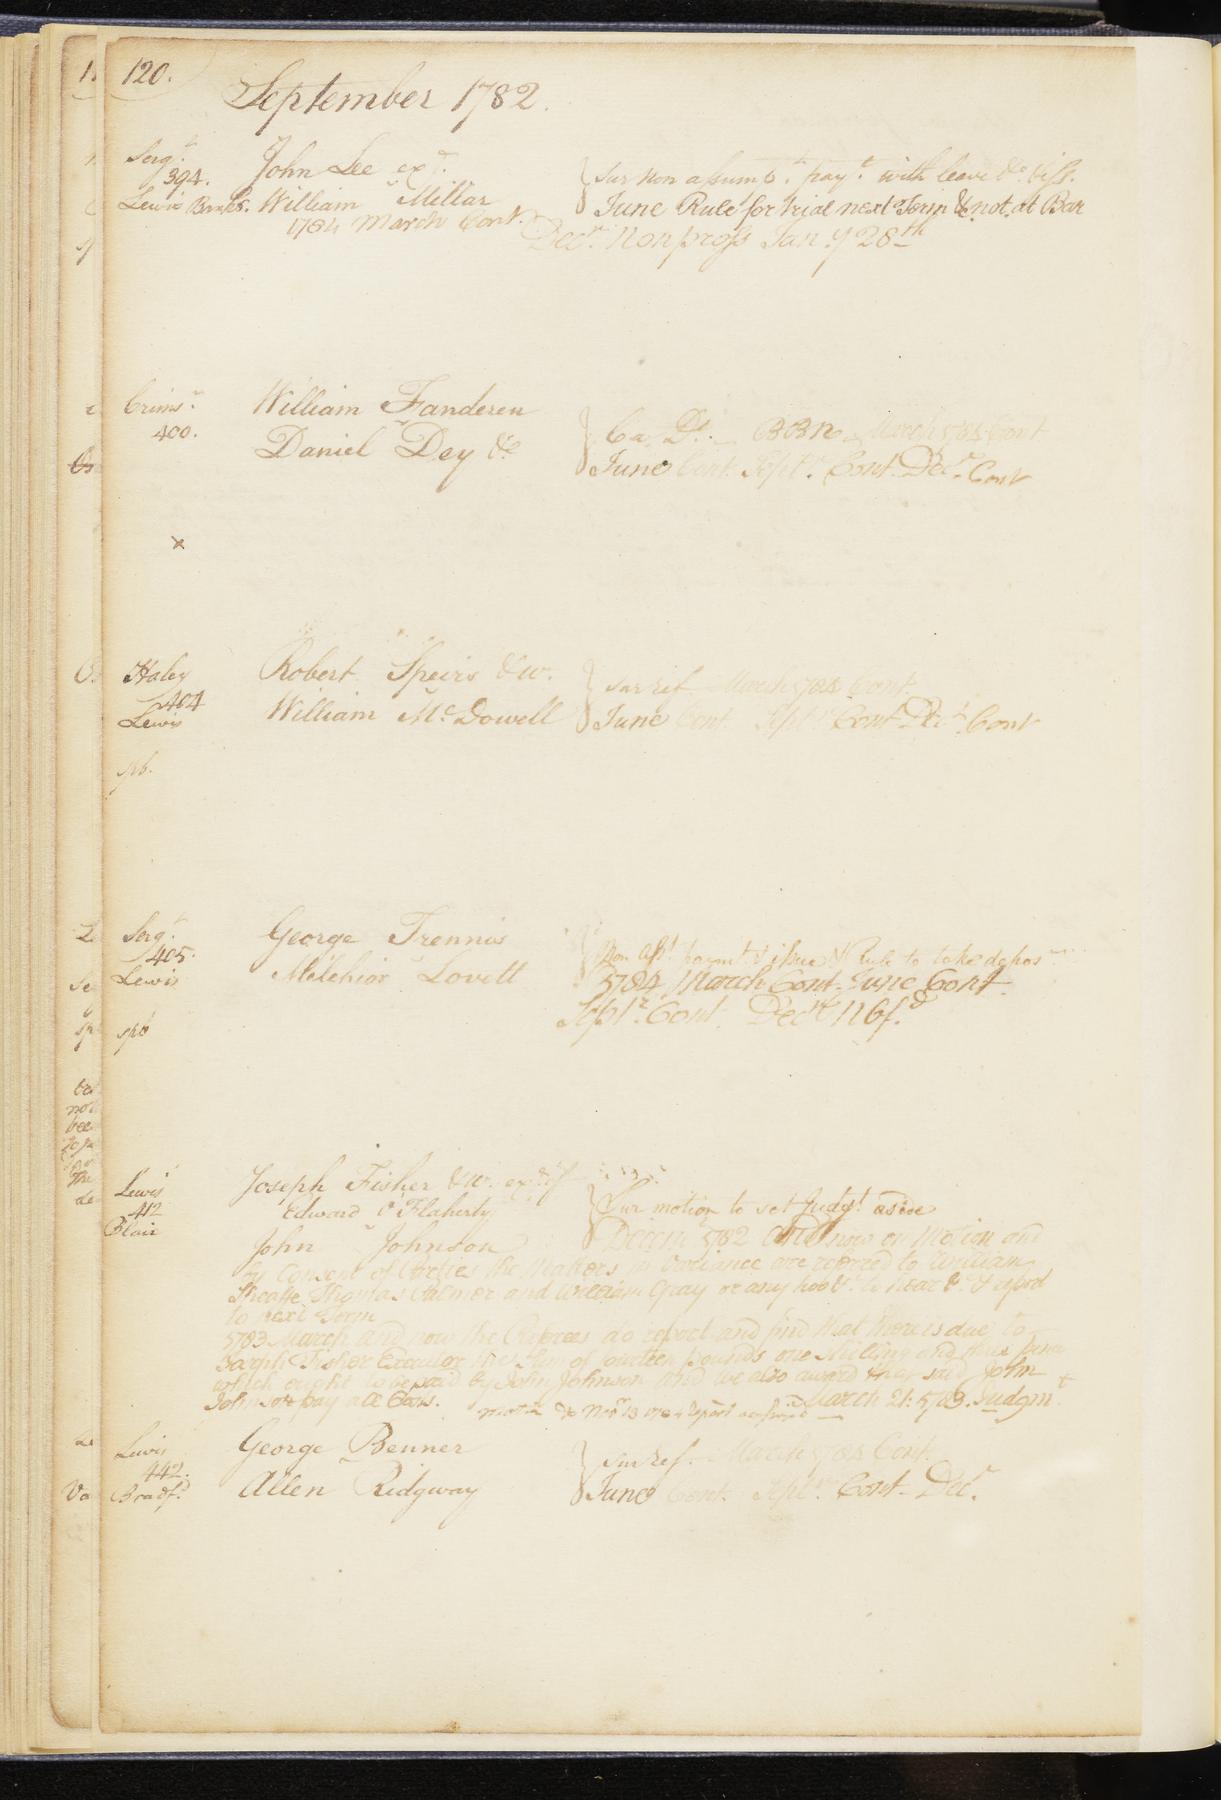 120.
September 1782.
Serg.t
394.
Lewis Bradfd.
John Lee exr.
William Millar
1784 March Cont.
Sur Non assumpt. payt. with leave &c. iss.
June Rule for trial next Term & not at Bar
Decr. Nonpross Jany 28th
Crims.
400.
William Fanderen
Daniel Dey &c
Ca. Ds. BBn March 1784 Cont
June Cont. Septr. Cont Decr. Cont
x
Haley
404
Lewis
Robert Speirs & w.
William McDowell
Sur ref. March 1784 Cont.
June Cont. Septr Cont Decr. Cont
spb.
Serg.t
405.
Lewis
George Trennis
Melchior Lovett
Non asst. paymt. & issue Rule to take depos
1784 March Cont. June Cont.
Septr. Cont. Decr
spb
Lewis
412
Blair
Joseph Fisher & w. exr. of
Edward O'Flaherty
John Johnson
Sur motion to set Judgt. aside
Decem 1782 And now on Motion and
by Consent of Parties the Matters in Variance are referred to William
Sheaffe Thomas Palmer and William Gray or any two &c. to hear &c. & report
to next Term
1783 March And now the Referees do report and find that there is due to
Joseph Fisher Executor the Sum of fourteen pounds one shilling and
which ought to be paid by John Johnson and we also award that said John
Johnson pay all Costs.
March 21: 1783. Judgmt
Novr 13 1784 Report confirmed
Lewis
442.
Bradfd.
George Benner
Allen Ridgway
Sur ref. March 1784 Cont.
June Cont. Septr. Cont. Decr.